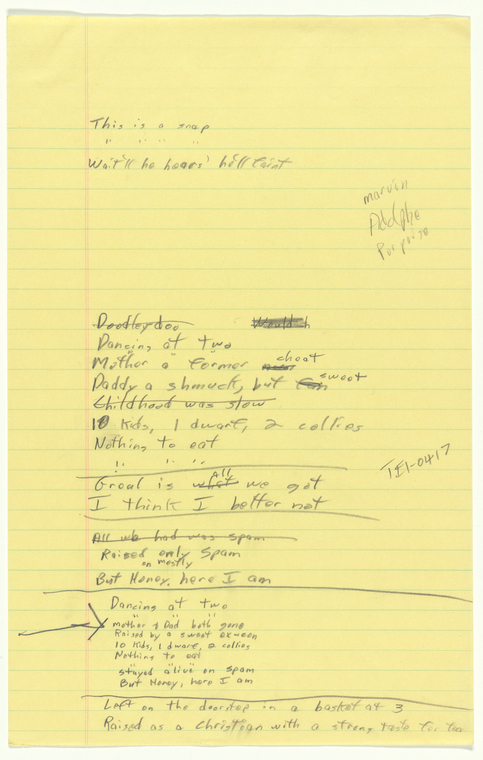 This is a snap
" " " "
Wait'll he hears' he'll faint
marvin
Adolpho
Porpoise
Doodleydoo
Dancing at two
Mother a former cheat
Daddy a shmuck, but sweet
Childhood was slow
10 Kids, 1 dwarf, 2 collies
Nothing to eat
" " "
Groal is what All we got
I think I better not
TEI-0417
All we had was spam
Raised only Spam
on mostly
But Honey, here I am
Dancing at two
mother & Dad both gone
Raised by a sweet
10 Kids, 1 dwarf, 2 collies
Nothing to eat
stayed alive on spam
But Honey, here I am
Left on the doorstep in a basket at 3
Raised as a Christian with a strong taste for tea